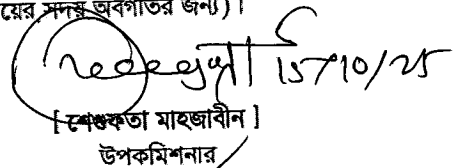 য়ের সদয় অবগতির জন্য)।
15/10/25
[ শেগুফতা মাহজাবীন ]
উপকমিশনার